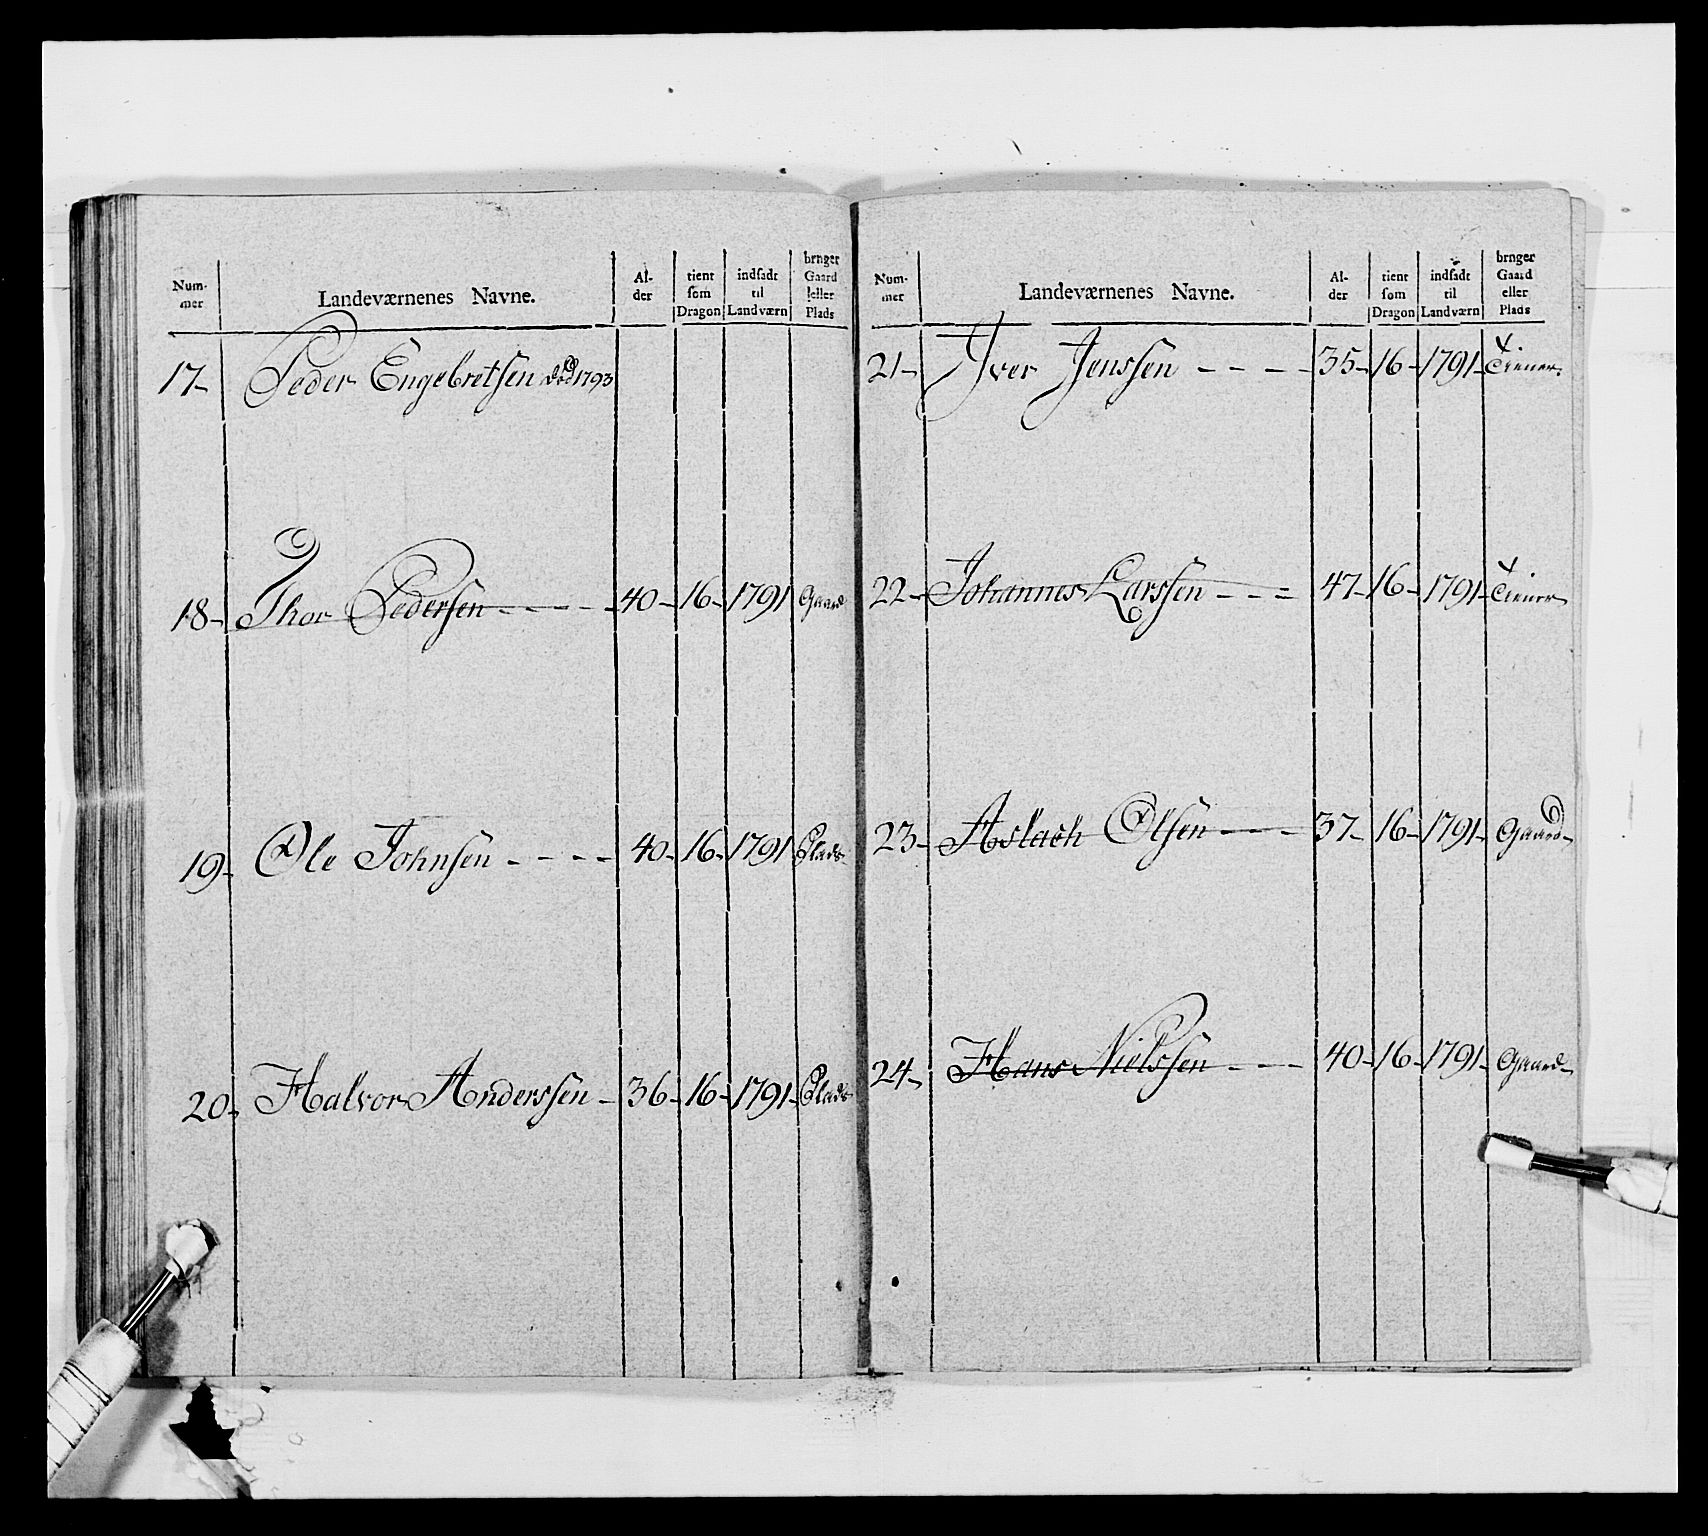 Num-
mer
Landeværnenes Navne.
Al-
der
tient
som
Dragon
indsadt
til
Landværn
bruger
Gaard
eller
Plads
17- Peder Engebretsen død 1793
18- Thor Pedersen - - - - 40- 16- 1791 Gaard
19- Ole Johnsen - - - - 40- 16- 1791 Plads-
20- Halvor Anderssen - 36- 16- 1791- Plads
Num-
mer
Landeværnenes Navne.
Al-
der
tient
som
Dragon
indsadt
til
Landværn
bruger
Gaard
eller
Plads
21- Iver Jenssen - - - - 35- 16- 1791- Tiener.
22- Johannes Larssen - - - 47- 16- 1791- Tiener
23- Aslach Olsen - - - 37- 16- 1791- Gaard-
24- Hans Nielssen - - - 40- 16- 1791- Gaard-